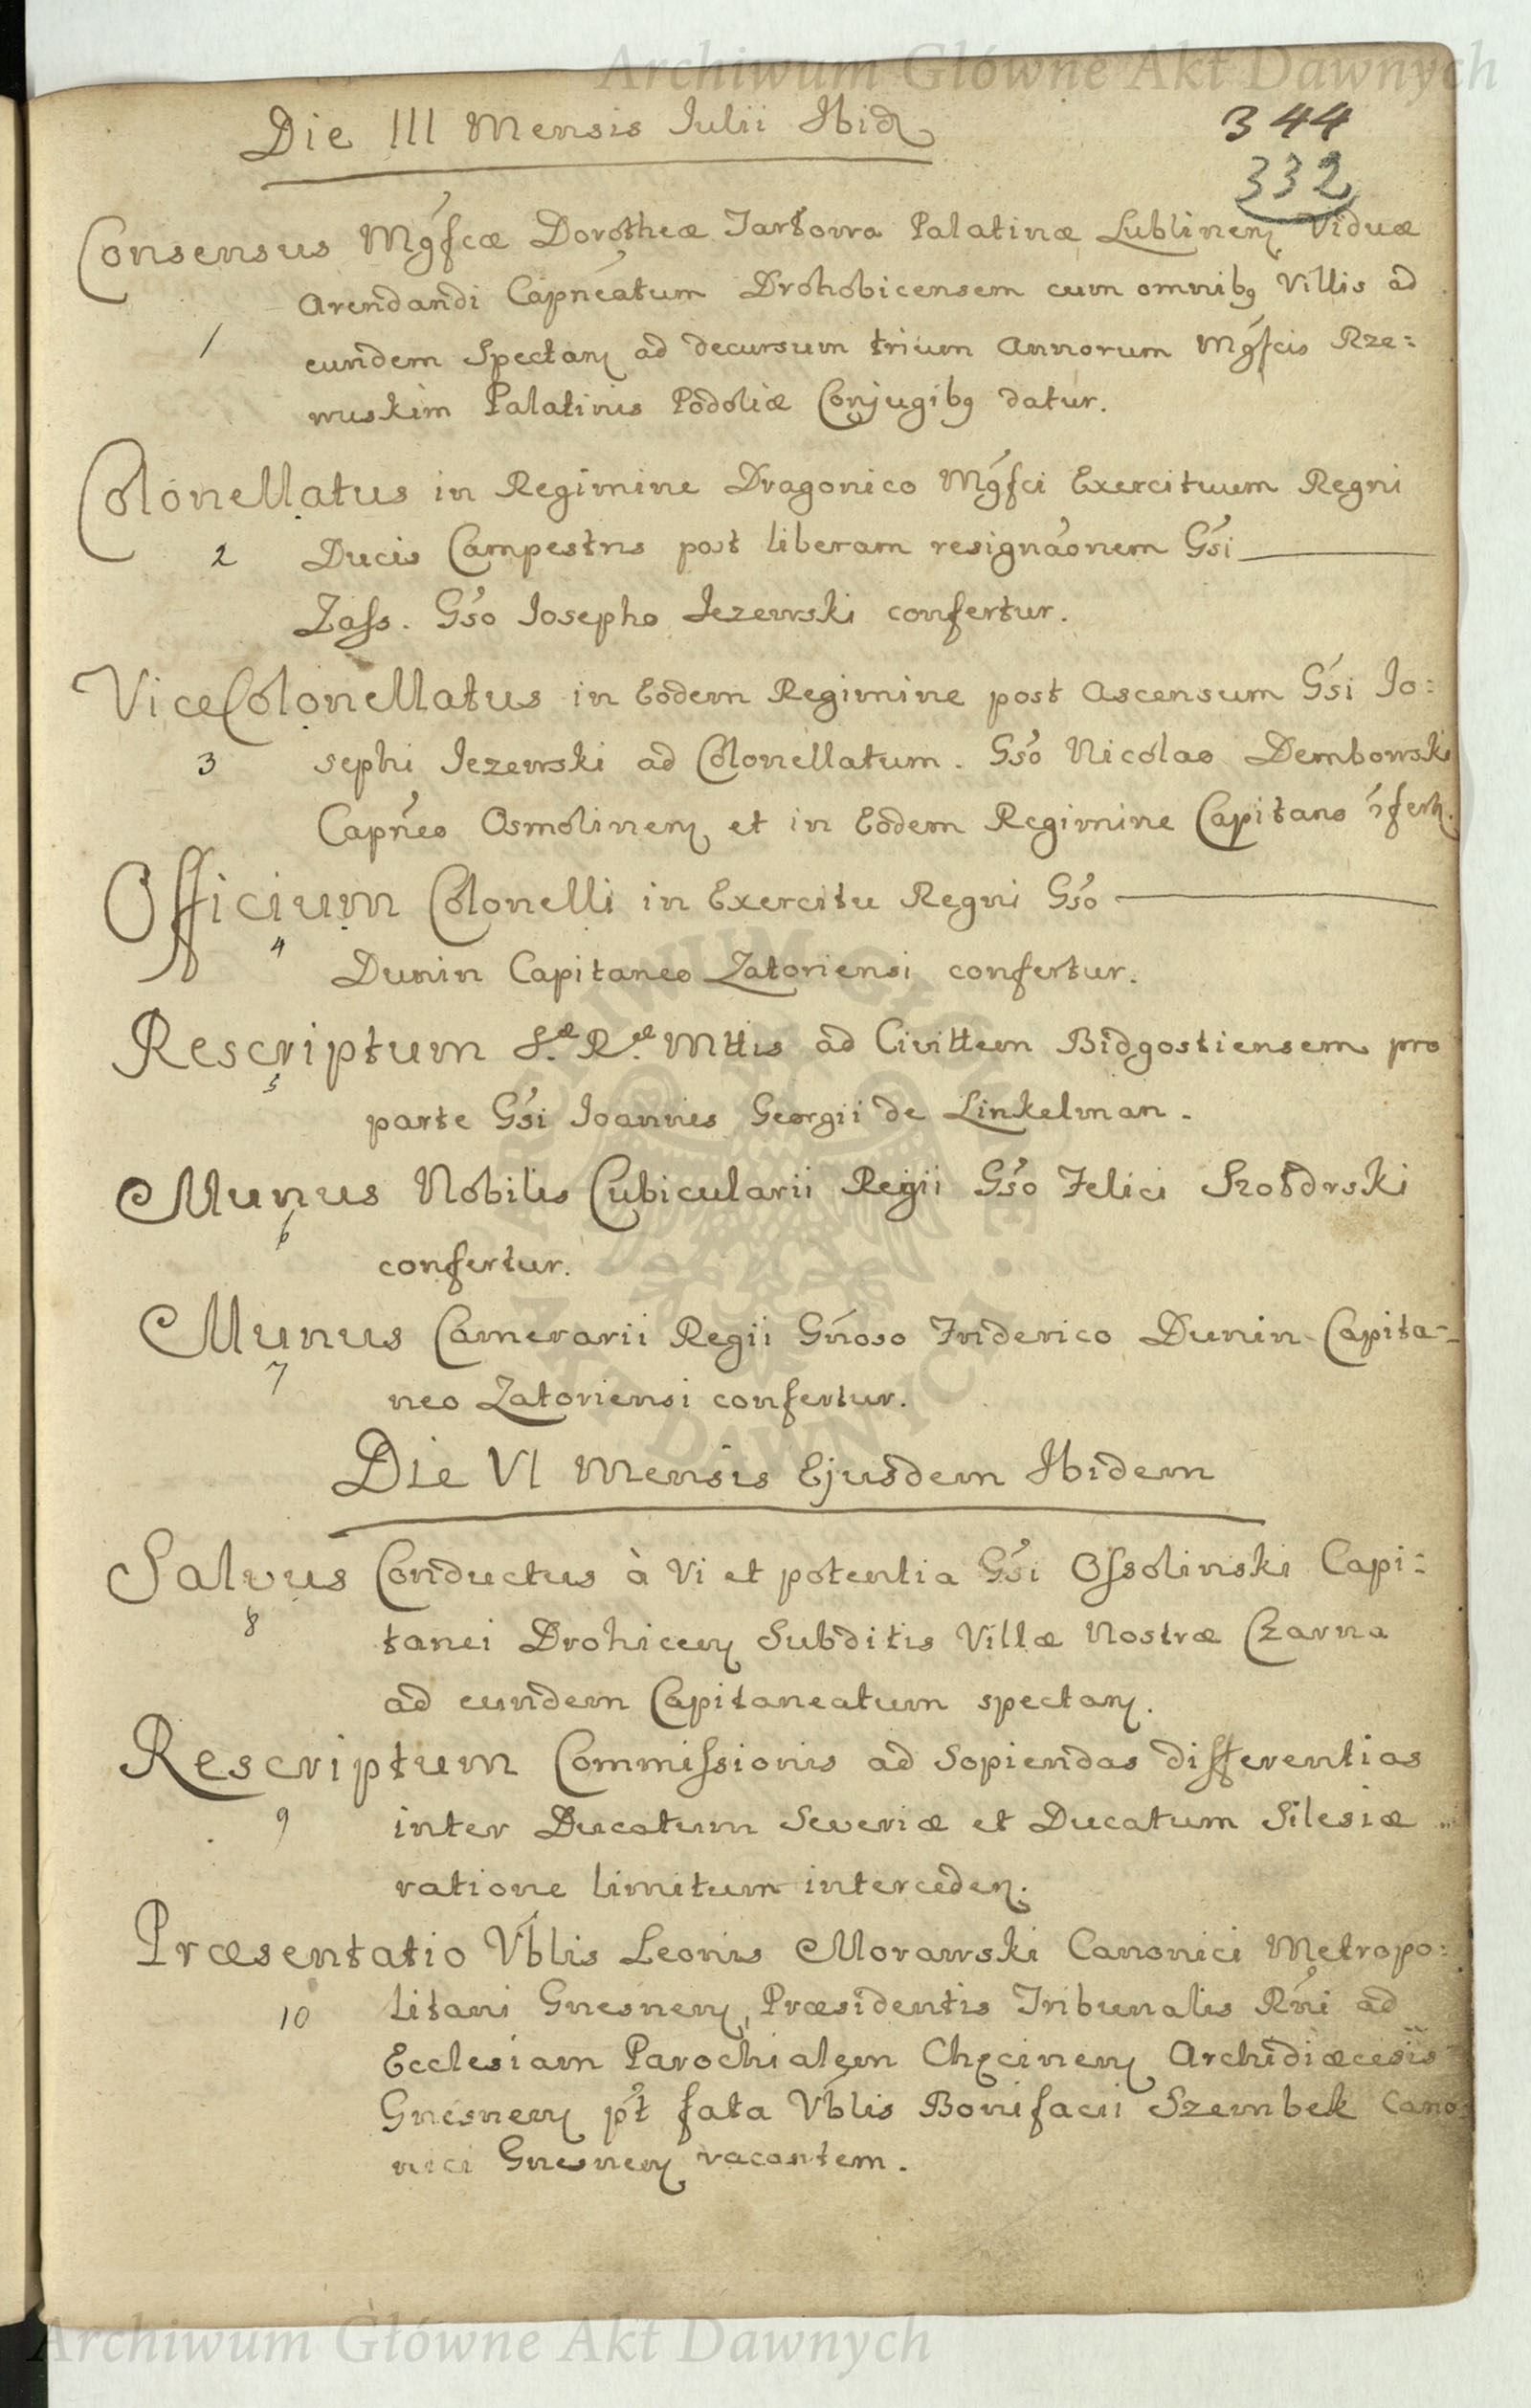 Archiwum Główne Akt Dawnych
Die III Mensis Iulii Ibid
344
332
Consensus Mgfcæ Dorotheæ Tarłowa Palatinæ Lublinen Viduæ
1 Arendandi Capneatum Drohobicensem cum omnibq Villis ad
eundem Spectan ad decursum trium Annorum Mgfcis Rze=
wuskim Palatinis Podoliæ Conjugibq datur.
Colonellatus in Regimine Dragonico Mgfci Exercituum Regni
2 Ducis Campestris post liberam resignaonem Gsi
Zass. Gso Iosepho Iezewski confertur.
ViceColonellatus in Eodem Regimine post ascensum Gsi Io=
3 sephi Iezewski ad Colonellatum. Gso Nicolao Dembowski
Capneo Osmolinen et in Eodem Regimine Capitano
Officium Colonelli in Exercitu Regni Gso
4 Dunin Capitaneo Zatoriensi confertur.
Rescriptum S.æ R.æ Mttis ad Civittem Bidgostiensem pro
5 parte Gsi Ioannis Georgii de Linkelman.
Munus Nobilis Cubicularii Regii Gso Felici Szołdrski
6 confertur.
Munus Camerarii Regii Gnoso Friderico Dunin Capita=
7 neo Zatoriensi confertur.
Die VI Mensis Ejusdem Ibidem
Salvus Conductus à Vi et potentia Gsi Ossolinski Capi=
8 tanei Drohicen Subditis Villæ Nostræ Czarna
ad eundem Capitaneatum spectan.
Rescriptum Commissionis ad Sopiendas differentias
9 inter Ducatum Severiæ et Ducatum Silesiæ
ratione limitum interceden.
Præsentatio Vblis Leonis Morawski Canonici Metropo=
10 litani Gnesnen, Præsidentis Tribunalis Rni ad
Ecclesiam Parochialem Chęcinen Archidiæcesis
Gnesnen pt fata Vblis Bonifacii Szembek Cano=
nici Gnesnen vacantem.
Archiwum Główne Akt Dawnych